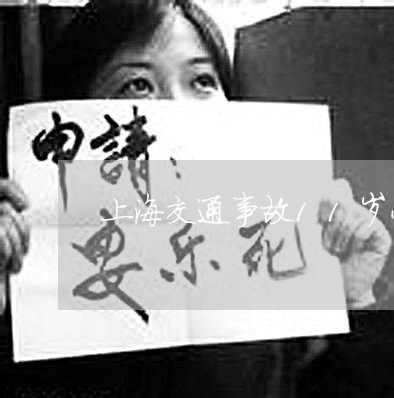 申請：
上海交通事故11岁
安乐死